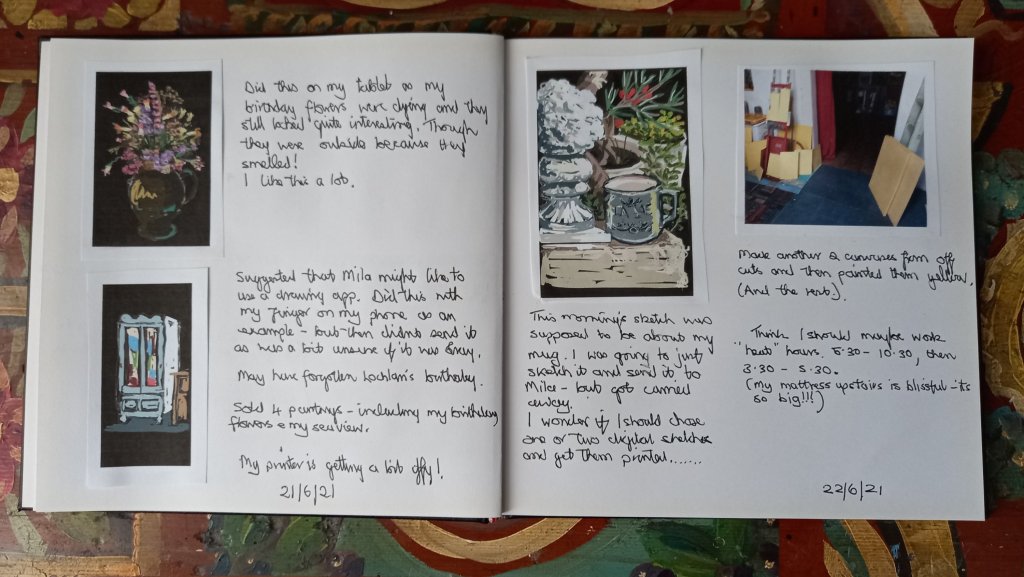 Did this on my tablet as my
birthday flowers were dying and they
still looked quite interesting. Though
they were outside because they
smelled!
I like this a lot.
Suggested that Mila might like to
use a drawing app. Did this with
my finger on my phone as an
example - but then didn't send it
as was a bit unsure if it was
May have forgotten Lachlan's birthday.
Sold 4 paintings - including my birthday
flowers & my sea view.
My printer is getting a bit iffy!
21/6/21
This morning's sketch was
supposed to be about my
mug. I was going to just
sketch it and send it to
Mila - but got carried
away.
I wonder if I should chose
one or two digital sketches
and get them printed.......
Made another 2 canvases from off
cuts and then painted them yellow.
(And the rest).
Think I should maybe work
"heat" hours. 5.30 - 10.30, then
3.30 - 5.30.
(My mattress upstairs is blissful - its
so big!!!)
22/6/21